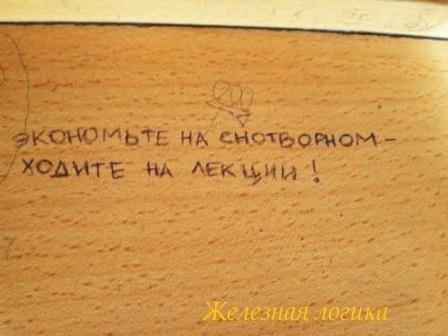 ЭКОНОМЬТЕ НА СНОТВОРНОМ –
ХОДИТЕ НА ЛЕКЦИИ!
Железная логика